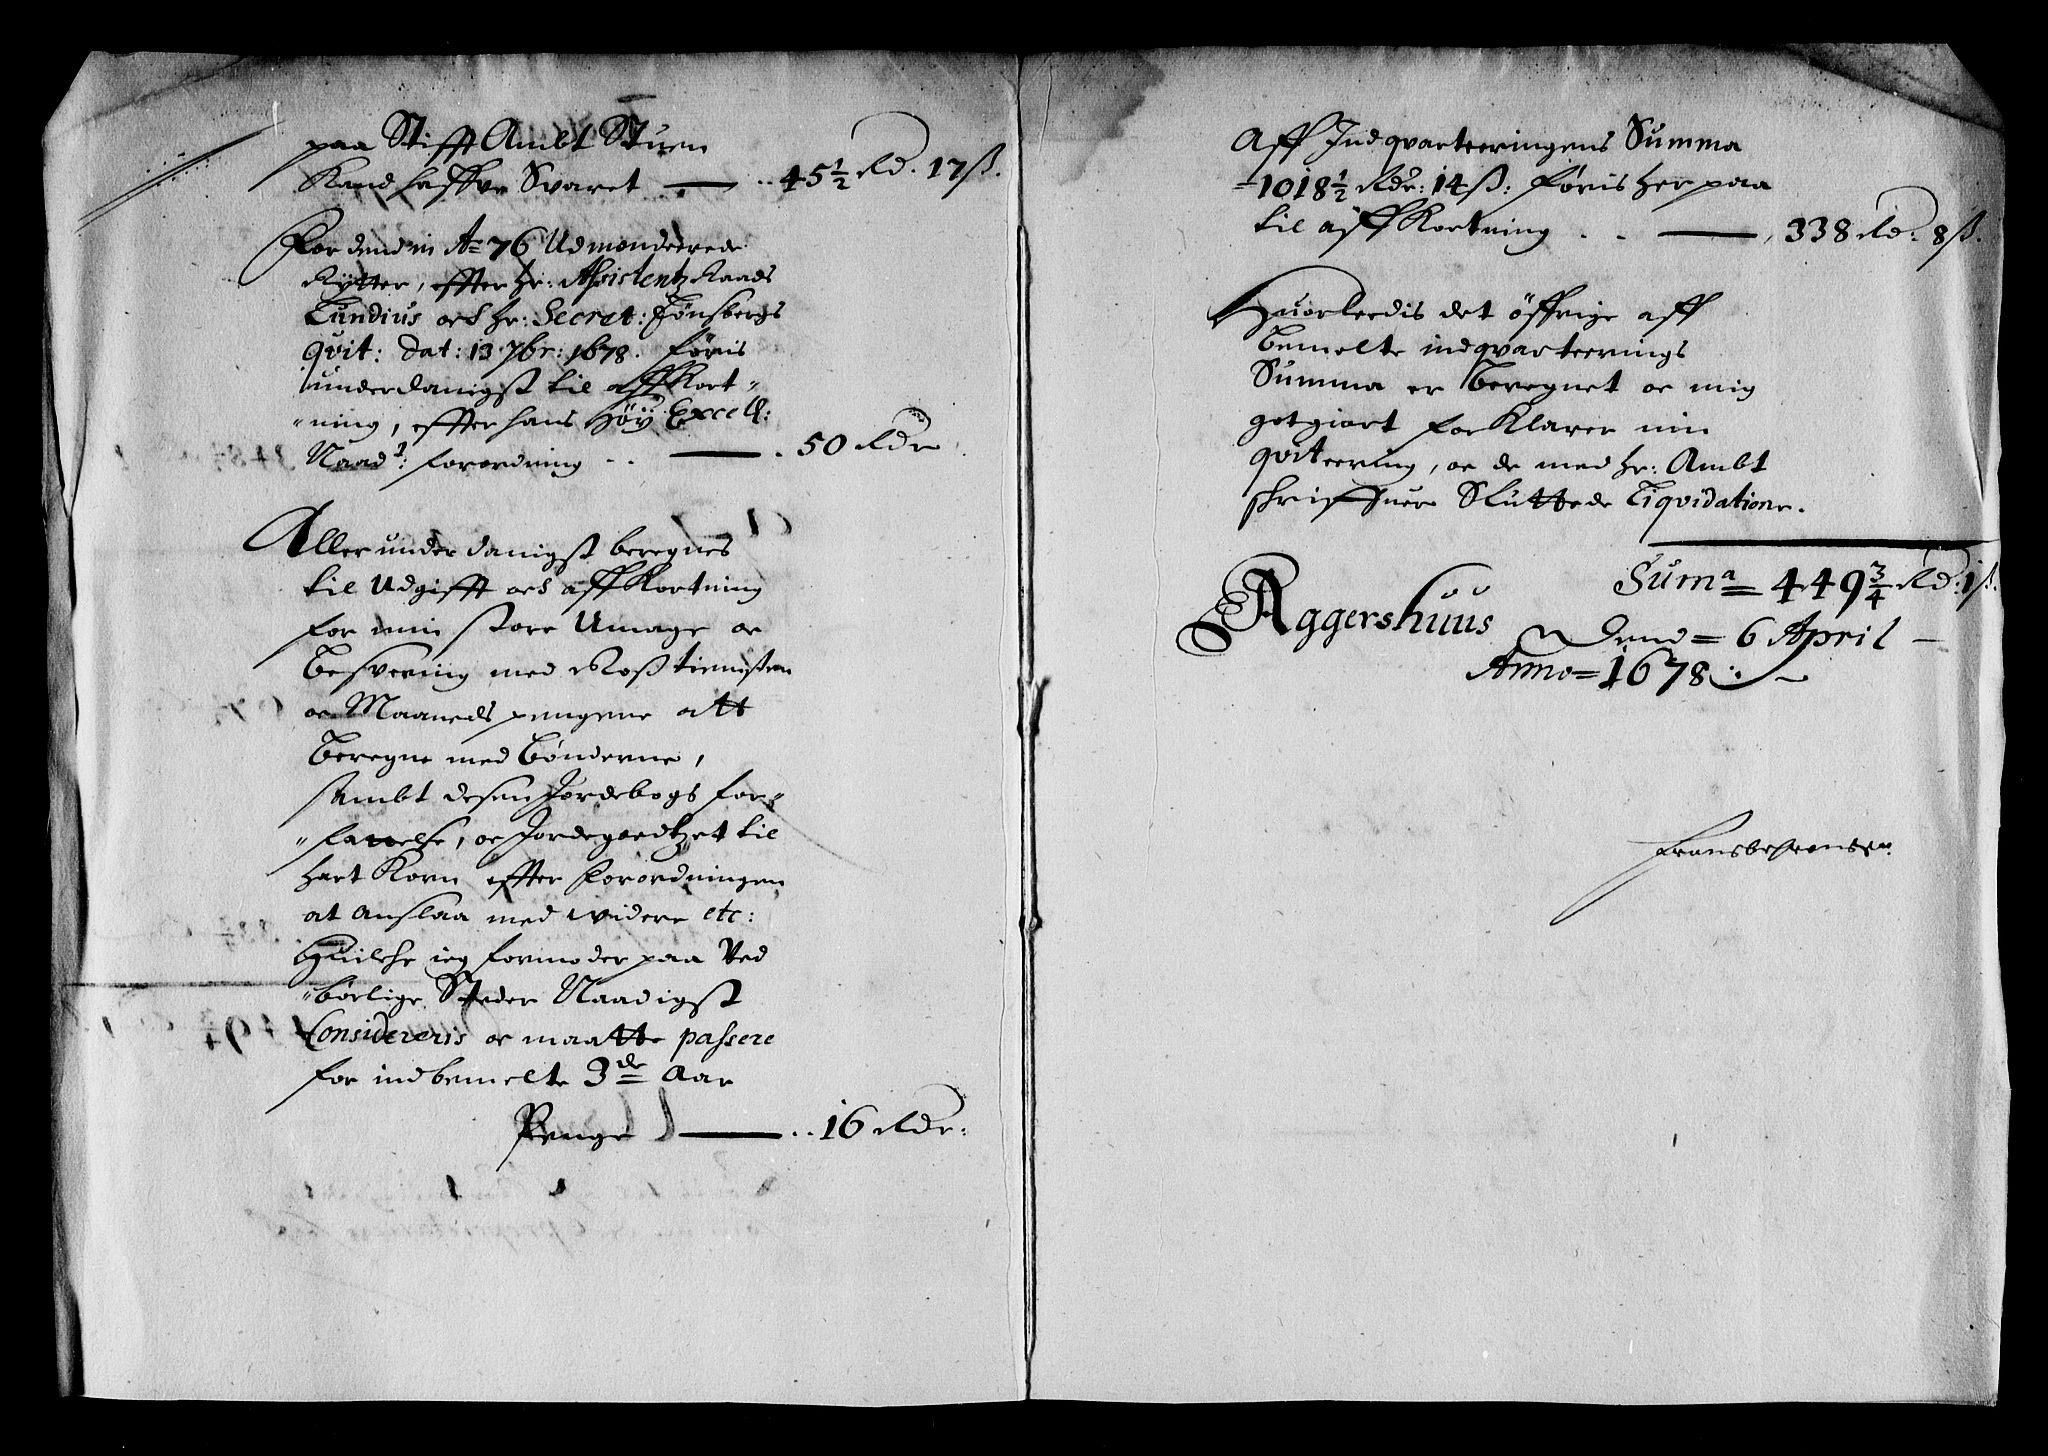 paa Stifft Ambt Stuen
Kand haffve Svaret — .. 45½ Rd. 17ß.
For dend in Aº 76 Udmonderede
Rÿtter, effter Hr: Assistentz Raads
Lundius och Hr: Secret: Tønsbergs
Qvit: Dat: 13 7br: 1678. føris
underdanigst til affKort"
"ning, effter hans Höÿ Excell:
Naad: forordning .. — . 50 Rdr
Aller underdanigst beregnes
til Udgifft och affKortning
for min store Umage oc
besvering med Roßtienisten
oc Maaneds pengene att
beregne med bønderne,
sambt desen Jordebogs for"
"fattelse, oc Jordegoedtzet til
hart Korn effter forordningen
at anslaa med videre etc:
Huilche ieg formoder paa Ved
"börlige Steder Naadigst
Considereris oc maatte passere
for indbemelte 3de Aar
Penge — .. 16 Rdr:
Aff Indqvarteeringens Summa
=1018½ Rdr: 14ß: føris her paa
til affKortning .. — , 338 Rd: 8ß.
Huorleedis det öffrige aff
bemelte indqvarteerings
Summa er beregnet oc mig
gotgiort forKlarer min
qviteering, oc de med Hr: Ambt
schriffuer Sluttede Liqvidatione.
Sumª = 449¾ Rd: 1ß.
Aggershuus
Dend = 6 April —
Anno = 1678 :